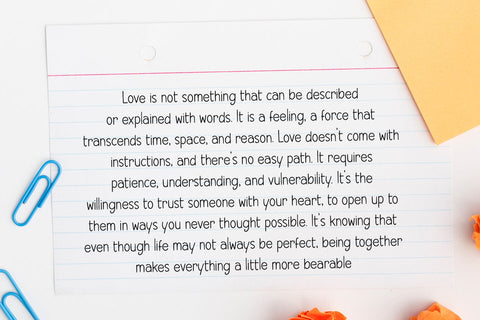 Love is not something that can be described
or explained with words. It is a feeling, a force that
transcends time, space, and reason. Love doesn't come with
instructions, and there's no easy path. It requires
patience, understanding, and vulnerability. It's the
willingness to trust someone with your heart, to open up to
them in ways you never thought possible. It's knowing that
even though life may not always be perfect, being together
makes everything a little more bearable